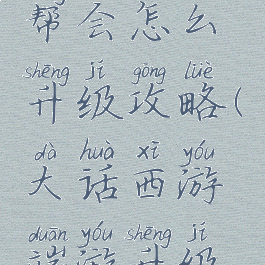 帮会怎么
shēng jí gōng lüè
升级攻略(
dà huà xī yóu
大话西游
duān yóu shēng jí
端游升级